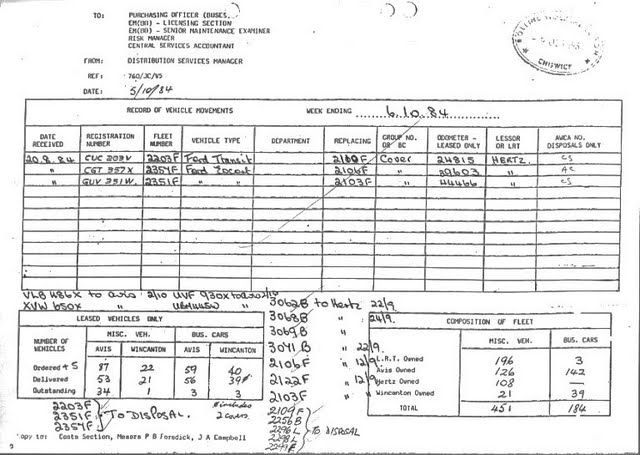 TO: PURCHASING OFFICER (BUSES,
EM(BO) - LICENSING SECTION
EM(BO) - SENIOR MAINTENANCE EXAMINER
RISK MANAGER
CENTRAL SERVICES ACCOUNTANT
FROM: DISTRIBUTION SERVICES MANAGER
REF: 760/JC/V5
DATE: 5/10/84
CHISWICK
RECORD OF VEHICLE MOVEMENTS WEEK ENDING 6.10.84
DATE RECEIVED REGISTRATION NUMBER FLEET NUMBER VEHICLE TYPE DEPARTMENT REPLACING GROUP NO. OR BC ODOMETER - LEASED ONLY LESSOR OR LRT AWCA NO. DISPOSALS ONLY
20.8.84 CUC 203V 2203F Ford Transit 2109F Cover 24815 HERTZ. CS
" CGT 357X 2357F Ford Escort 2106F " 29603 " AC
" GUV 351W 2351F " " 2103F " 44466 " CS
VLB 486X to avis 2/10 UVF 930X to avis 2/10
XVW 650X "
3062B to Hertz 22/9.
3063B " 24/9.
3069B "
3071B " 22/9.
2106F " 12/9.
2122F " 12/9
2103F "
LEASED VEHICLES ONLY
NUMBER OF VEHICLES MISC. VEH. BUS. CARS
AVIS WINCANTON AVIS WINCANTON
Ordered + 5 87 22 59 40
Delivered 53 21 56 39
Outstanding 34 1 3 3
includes 2 covers
COMPOSITION OF FLEET
MISC. VEH. BUS. CARS
L.R.T. Owned 196 3
Avis Owned 126 142
Hertz Owned 108 —
Wincanton Owned 21 39
TOTAL 451 184
2203F
2351F
2357F
TO DISPOSAL.
2109F
2256B
2296L
2298L
2299F
TO DISPOSAL
Copy to: Costs Section, Messrs P B Forsdick, J A Campbell